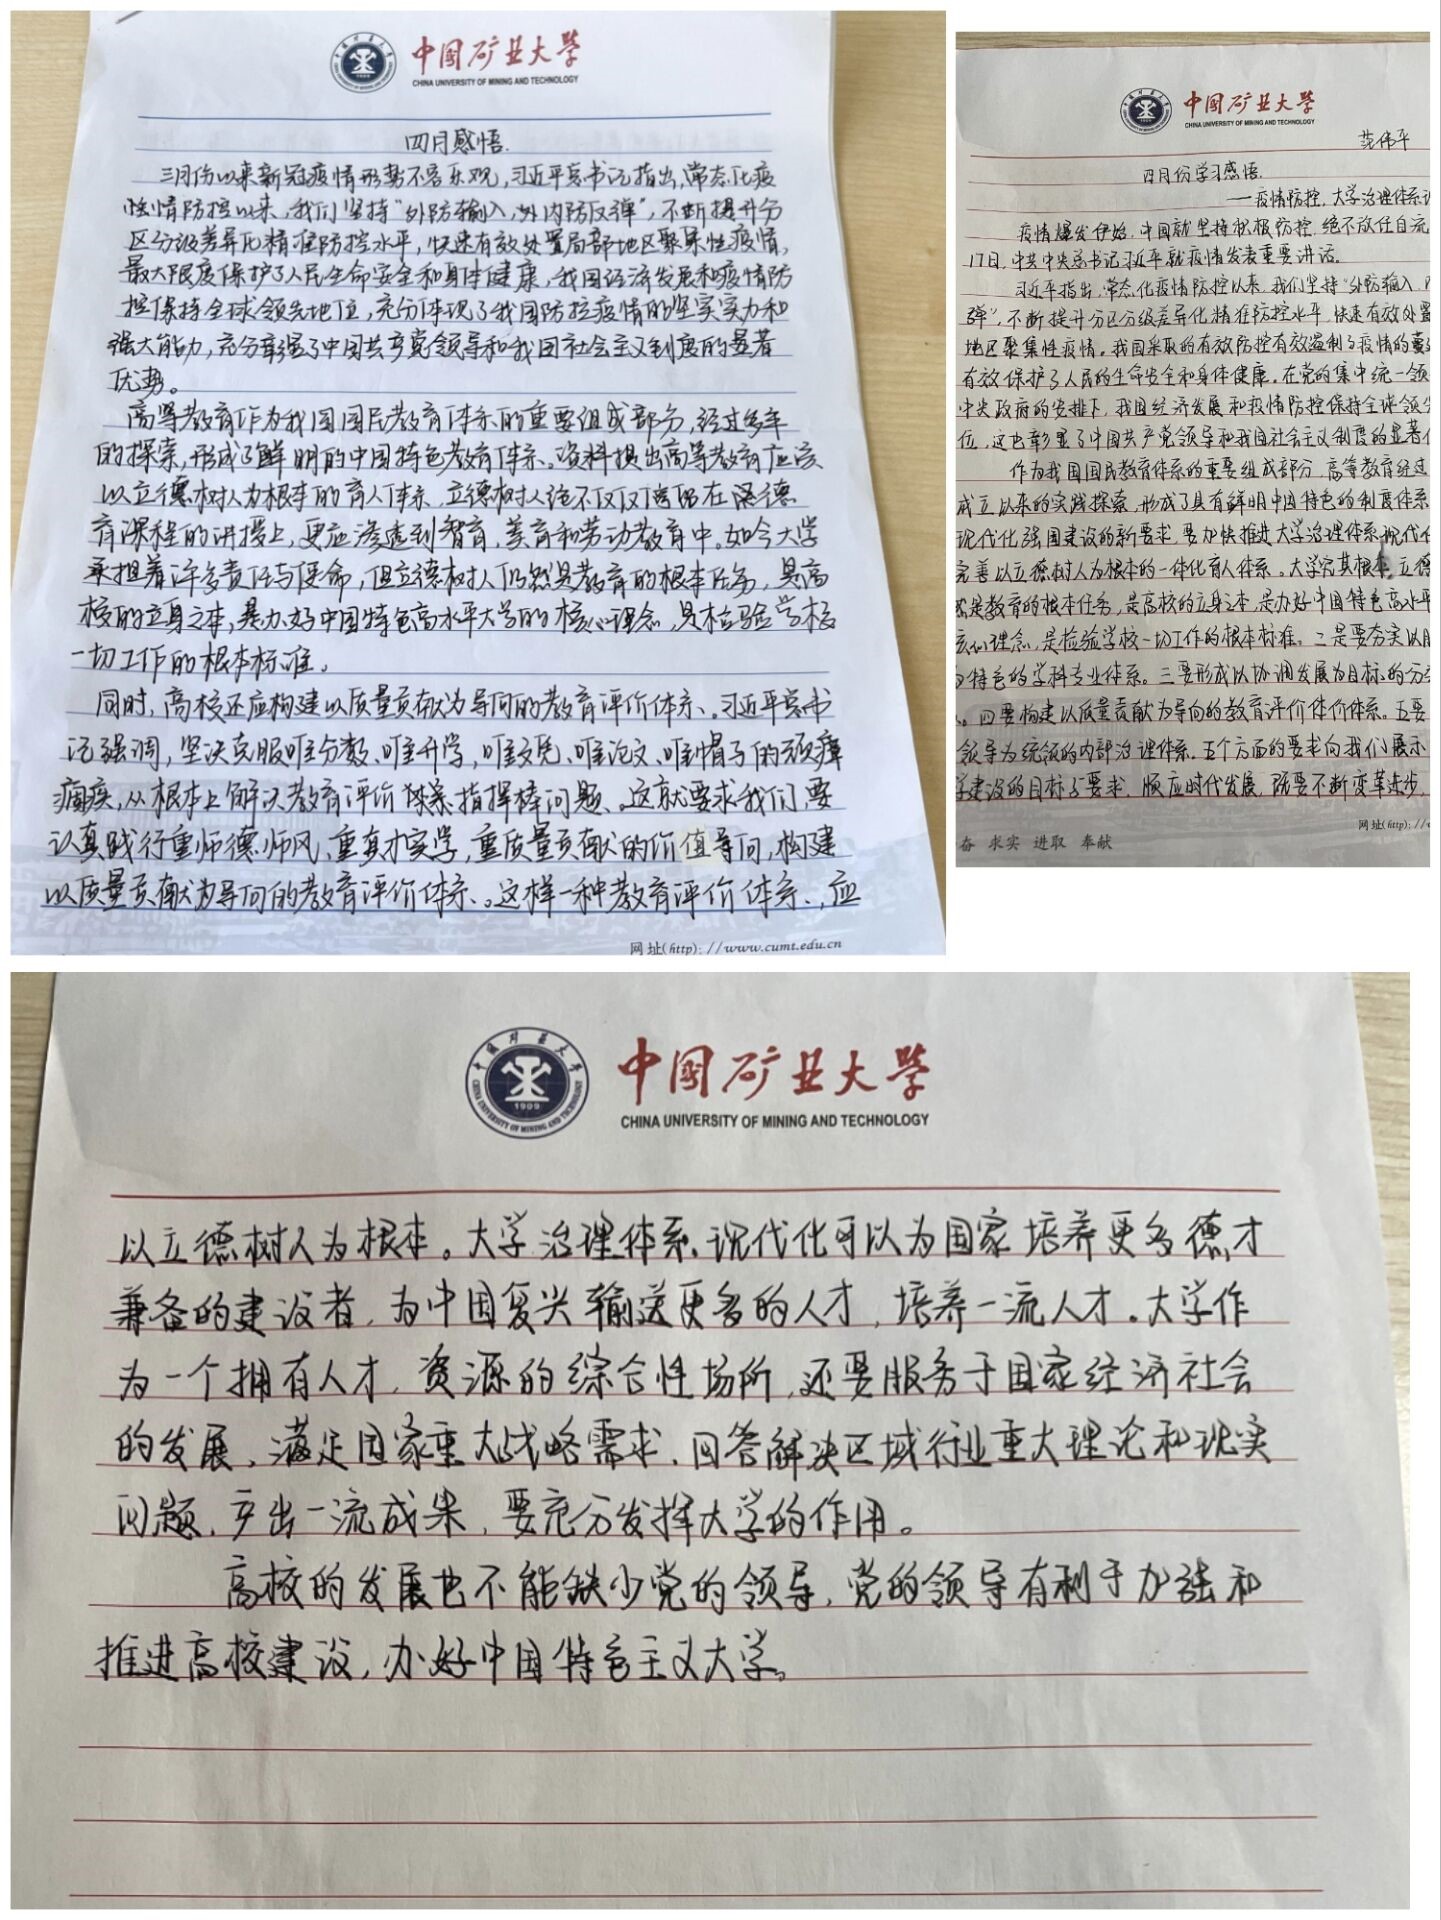 中国矿业大学
CHINA UNIVERSITY OF MINING AND TECHNOLOGY
四月感悟.
三月份以来新冠疫情形势不容乐观,习近平总书记指出,常态化疫
情防控以来,我们坚持“外防输入,内防反弹”,不断提升分
区分级差异化精准防控水平,快速有效处置局部地区聚集性疫情,
最大限度保护了人民生命安全和身体健康,我国经济发展和疫情防
控保持全球领先地位,充分体现了我国防控疫情的坚实实力和
强大能力,充分彰显了中国共产党领导和我国社会主义制度的显著
优势。
高等教育作为我国国民教育体系的重要组成部分,经过多年
的探索,形成了鲜明的中国特色教育体系。资料提出高等教育应该
以立德树人为根本的育人体系,立德树人绝不仅仅停留在德
育课程的讲授上,更应渗透到智育,美育和劳动教育中。如今大学
承担着许多责任与使命,但立德树人仍然是教育的根本任务,是高
校的立身之本,是办好中国特色高水平大学的核心理念,是检验学校
一切工作的根本标准。
同时,高校还应构建以质量贡献为导向的教育评价体系。习近平总书
记强调,坚决克服唯分数、唯升学,唯文凭、唯论文、唯帽子的顽瘴
痼疾,从根本上解决教育评价体系指挥棒问题、这就要求我们,要
认真践行重师德师风,重真才实学,重质量贡献的价值导向,构建
以质量贡献为导向的教育评价体系。这样一种教育评价体系,应
网址(http)://www.cumt.edu.cn
中国矿业大学
CHINA UNIVERSITY OF MINING AND TECHNOLOGY
范伟平
四月份学习感悟.
——疫情防控,大学治理体系
疫情爆发伊始,中国就坚持积极防控,绝不放任自流
17日,中共中央总书记习近平就疫情发表重要讲话。
习近平指出,常态化疫情防控以来,我们坚持“外防输入,
弹”,不断提升分区分级差异化精准防控水平,快速有效处置
地区聚集性疫情。我国采取的有效防控有效遏制了疫情的蔓
有效保护了人民的生命安全和身体健康。在党的集中统一领
中央政府的安排下,我国经济发展和疫情防控保持全球领先
位,这也彰显了中国共产党领导和我国社会主义制度的显著
作为我国国民教育体系的重要组成部分,高等教育经过
成立以来的实践探索,形成了具有鲜明中国特色的制度体系
现代化强国建设的新要求,要加快推进大学治理体系现代化
完善以立德树人为根本的一体化育人体系。大学究其根本,立德
然是教育的根本任务,是高校的立身之本,是办好中国特色高水平
核心理念,是检验学校一切工作的根本标准。二是要夯实以
特色的学科专业体系。三要形成以协调发展为目标的分
。四要构建以质量贡献为导向的教育评价体价体系。五要
领导为统领的内部治理体系。五个方面的要求向我们展示
建设的目标与要求,顺应时代发展,既要不断变革进步,
网址(http)://
奋 求实 进取 奉献
中国矿业大学
CHINA UNIVERSITY OF MINING AND TECHNOLOGY
以立德树人为根本。大学治理体系现代化可以为国家培养更多德才
兼备的建设者,为中国复兴输送更多的人才,培养一流人才。大学作
为一个拥有人才,资源的综合性场所,还要服务于国家经济社会
的发展,满足国家重大战略需求,回答解决区域行业重大理论和现实
问题,产出一流成果,要充分发挥大学的作用。
高校的发展也不能缺少党的领导,党的领导有利于加强和
推进高校建设,办好中国特色主义大学。